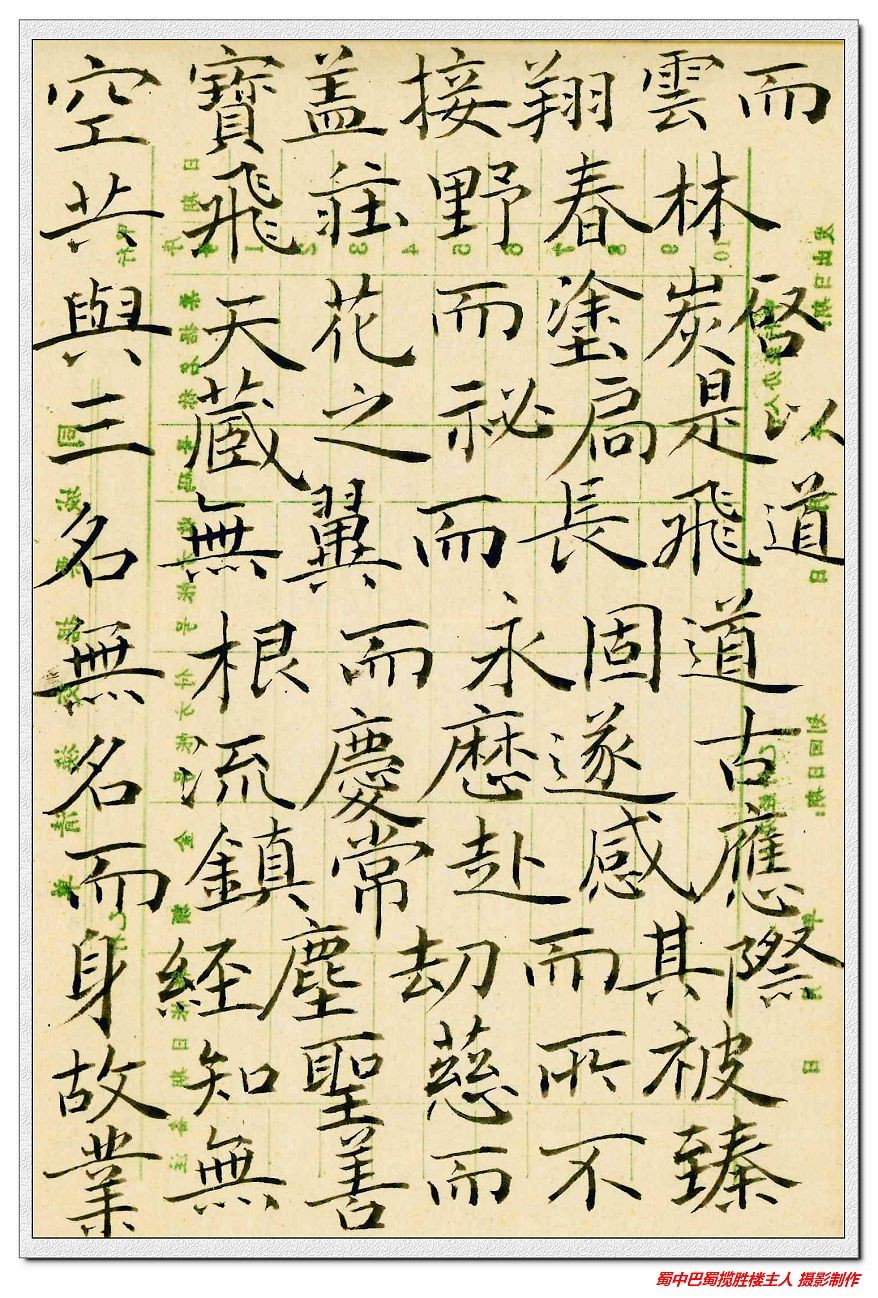 而啓以道際
雲林炭是飛道古應其被臻
翔春塗扃長固遂感而所不
接野而祕而永歷赴劫慈而
盖莊花之翼而慶常塵聖善
寶飛天藏無根流鎮經知無
空共與三名無名而身故業
蜀中巴蜀揽胜楼主人 摄影制作